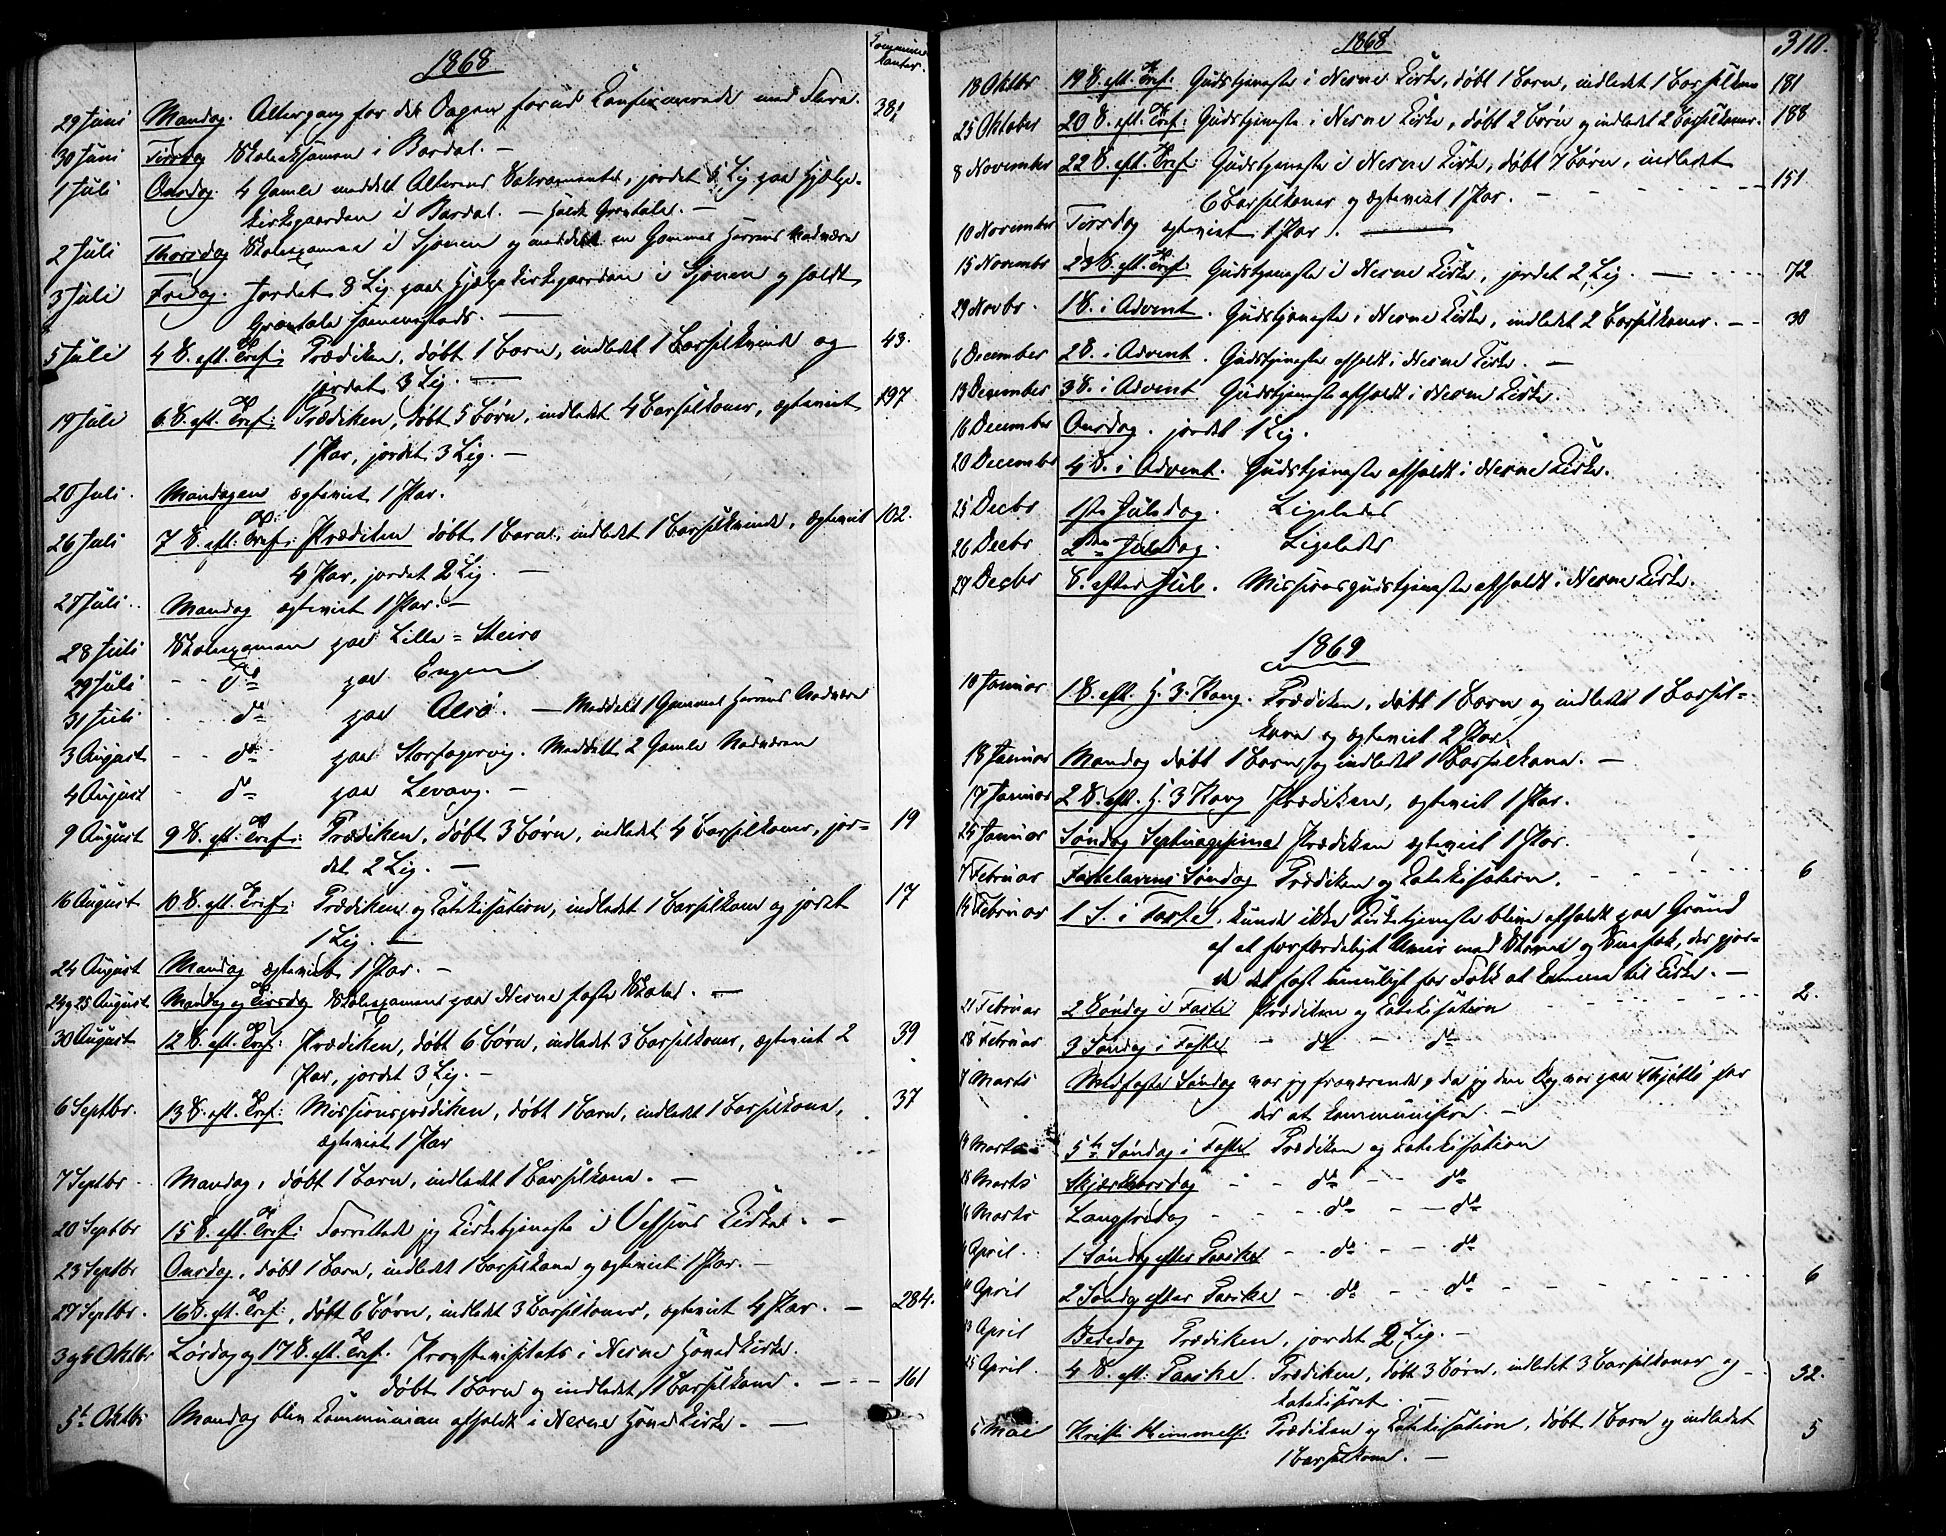 1868
Communi-
kanter.
29 Juni Mandag. Altergang for det Dagen forud Konfirmerede med Flere. 381
30 Juni Tirsdag Skoleexamen i Bardal. —
1 Juli Onsdag. 4 Gamle meddelt Alterens Sakramente, jordet 5 Lig paa Hjelpe-
kirkegaarden i Bardal. — holdt Gravtale. —
2 Juli Thorsdag Skoleexamen i Sjonen og meddelt en Gammel Herrens Nadvere
3 Juli Fredag. Jordet 8 Lig paa Hjelpekirkegaarden i Sjonen og holdt
Gravtale sammesteds. —
5 Juli 4 S. eft. Tref: Prædiken, døbt 1 Barn, indledet 1 Barselkvinde og 43.
jordet 3 Lig. —
19 Juli 6 S. eft. Tref: Prædiken, døbt 5 Børn, indledet 4 Barselkoner, ægteviet 197
1 Par, jordet 3 Lig. —
20 Juli. Mandagen ægteviet 1 Par.
26 Juli 7 S. eft: Tref: Prædiken døbt 1 Barn, indledet 1 Barselkvinde, ægteviet 102.
4 Par, jordet 2 Lig. —
27 Juli. Mandag ægteviet 1 Par. —
28 Juli Skoleexamen paa Lille=Steiro
29 Juli - - Do paa Engen
31 Juli - - do paa Alsö. — Meddelt 1 Gammel Herrens Nadvere
3 August - - do paa Storfagervig. Meddelt 2 Gamle Nadveren
4 August - do paa Levang. —
9 August 9 S. eft: Tref: Prædiken, døbt 3 Børn, indledet 4 Barselkoner, jor= 19
det 2 Lig. —
16 August 10 S. eft. Tref: Prædiken og Katekisation, indledet 1 Barselkone og jordet 17
1 Lig. —
24 August Mandag ægteviet 1 Par. —
24 og 25 August Mandag og Tirsdag Skoleexamen paa Nesne faste Skole. —
30 August 12 S. eft. Tref: Prædiken, døbt 6 Børn, indledet 3 Barselkoner, ægteviet 2 39
Par, jordet 3 Lig. —
6 Septbr. 13 S. eft. Tref: Missionsprædiken, døbt 1 Barn, indledet 1 Barselkone, 37
ægteviet 1 Par
7 Septbr - Mandag, døbt 1 Barn, indledet 1 Barselkone. —
20 Septbr 15 S. eft. Tref: Forrettede jeg Kirketjeneste i Vefsens Kirke. —
23 Septbr Onsdag, døbt 1 Barn, indledet 1 Barselkone og ægteviet 1 Par. —
27 Septbr. 16 S. eft. Tref:, døbt 6 Børn, indledet 3 Barselkoner, ægteviet 4 Par. — 284.
3 og 4 Oktbr Lørdag og 17 S. eft. Tref. Provstevisitats i Nesne Hovedkirke.
døbt 1 Barn og indledet 1 Barselkone. — 161
5te Oktbr Mandag blev Kommunion afholdt i Nesne Hovedkirke. —
310.
1868
18 Oktbr 19 S. eft. Tref. Gudstjeneste i Nesne Kirke, døbt 1 Barn, indledet 1 Barselkone 181
25 Oktober 20 S. eft. Tref: Gudstjeneste i Nesne Kirke, døbt 2 Børn og indledet 2 Barselkoner. 188
8 November 22 S. eft. Tref: Gudstjeneste i Nesne Kirke, døbt 7 Børn, indledet
6 Barselkoner og ægteviet 1 Par. - - - 151
10 November Tirsdag ægteviet 1 Par. —
15 Novembr 23 S. eft. Tref: Gudstjeneste i Nesne Kirke, jordet 2 Lig. — 72
29 Novbr. 1 S. i Advent. Gudstjeneste i Nesne Kirke, indledet 2 Barselkoner. - - 30
6 December 2 S. i Advent. Gudstjeneste afholdt i Nesne Kirke. —
13 December 3 S. i Advent Gudstjeneste afholdt i Nesne Kirke.
16 December Onsdag. jordet 1 Lig.
20 Decembr 4 S. i Advent. Gudstjeneste afholdt i Nesne Kirke.
25 Decbr 1ste Juledag. Ligeledes
26 Decbr 2den Juledag. Ligeledes
27 Decbr S. efter Jul. Missionsgudstjeneste afholdt i Nesne Kirke.
1869
10 Januar 1 S. eft. H. 3. Kong. Prædiken, døbt 1 Barn og indledet 1 Barsel=
kone og ægteviet 2 Par.
18 Januar Mandag døbt 1 Barn, og indledet 1 Barselkone. —
17 Januar 2 S. eft. H. 3 Kong Prædiken, ægteviet 1 Par.
24 Januar Søndag Septuagesima Prædiken ægteviet 1 Par.
7 Februar Fastelavens Søndag Prædiken og Katekisation. - - - 6
14 Februar 1 S. i Faste. kunde ikke Kirketjeneste blive afholdt paa Grund
af et forfærdeligt Uveir med Storm og Snefok, der gjor=
de det fast umuligt for Folk at komme til Kirke. —
21 Februar 2 Søndag i Faste Prædiken og Katekisation - - - 2.
28 Februar 3 Søndag i Faste - do - do
7 Marts Midfaste Søndag var jeg fraværende, da jeg den Dag var paa Thjøttö for
der at kommunisere. —
14 Marts 5te Søndag i Faste Prædiken og Katekisation
Marts Skjærthorsdag - - do - - do
Marts Langfredag - - - do - - do
April. 1 Søndag efter Paaske - - do - - do
11 April 2 Søndag efter Paaske - - do - - do - - - 6
April Bededag Prædiken, jordet 2 Lig. —
25 April. 4 S. eft: Paaske. Prædiken, døbt 3 Børn, indledet 3 Barselkoner og - 32.
katekiseret. —
6 Mai Kristi Himmelf: Prædiken og Katekisation, døbt 1 Barn og indledet 5
1 Barselkone. —